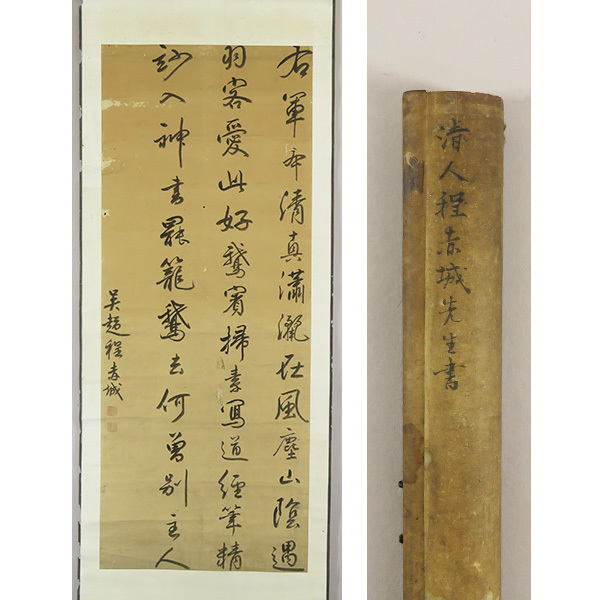 右軍本清真瀟灑在風塵山陰遇
羽客愛此好鵝賓掃素寫道經筆精
妙入神書罷籠鵝去何曾別主人
吳趨程赤城
清人程赤城先生書